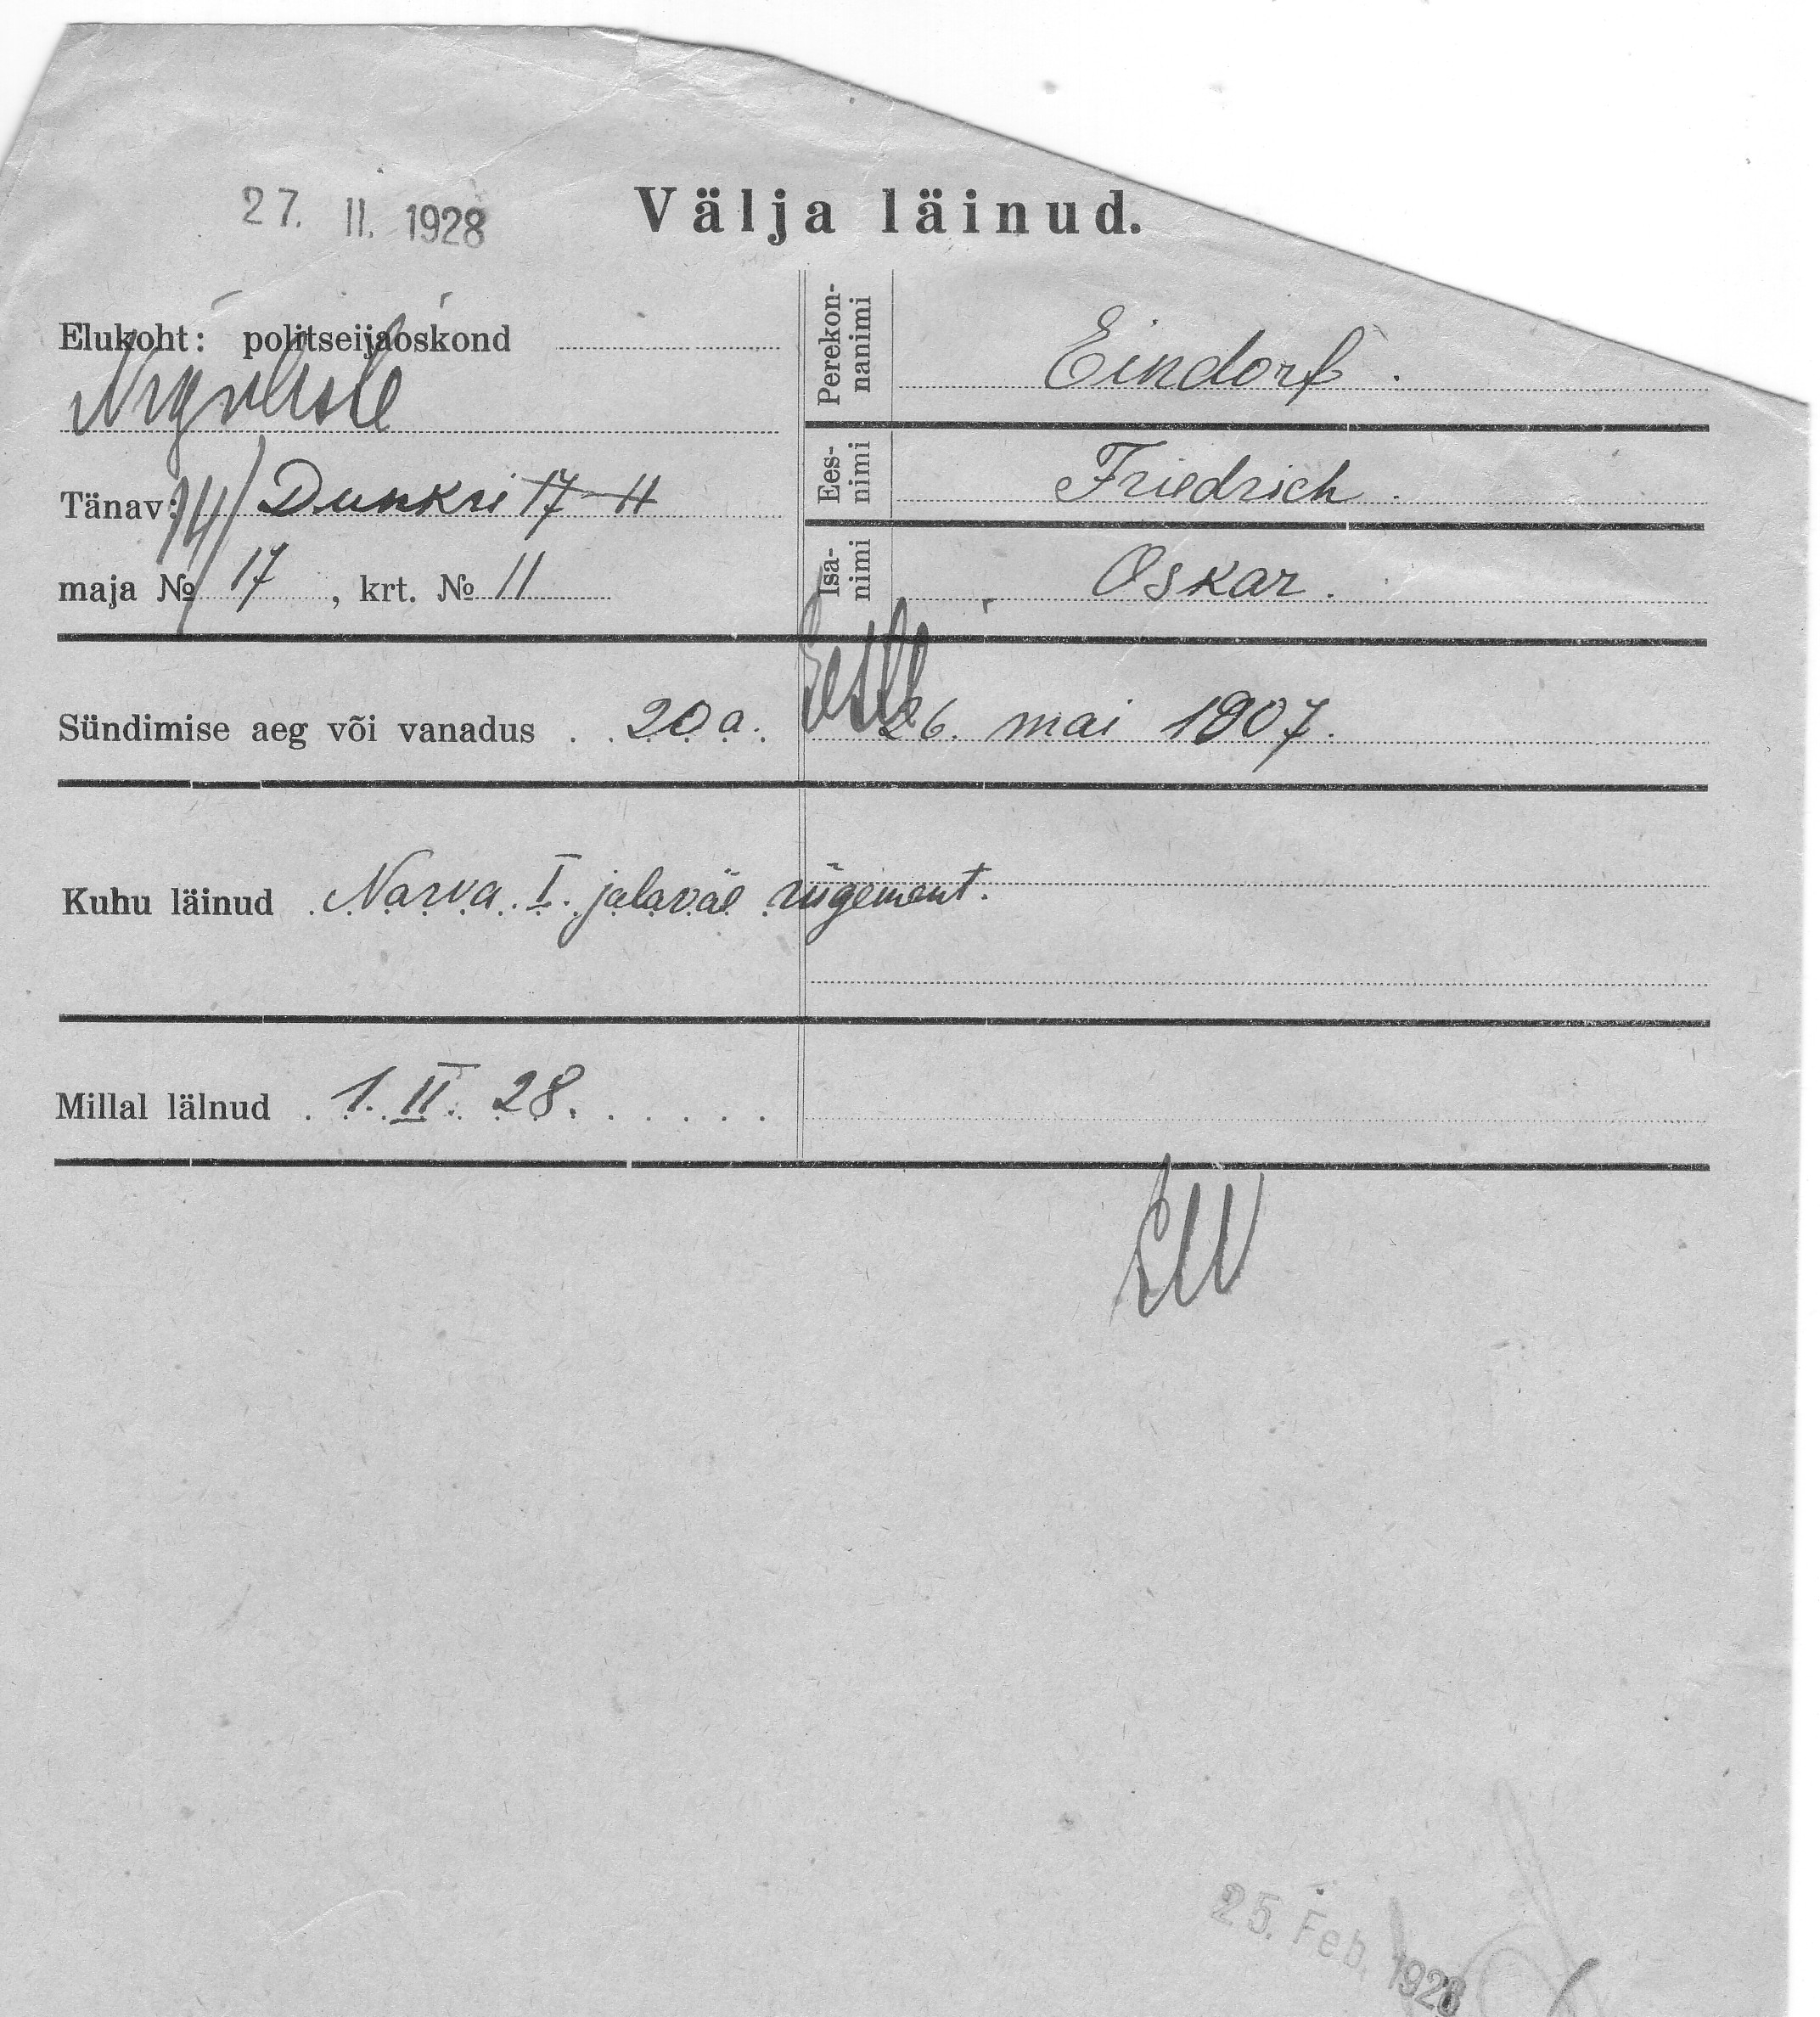 27. II. 1928
Välja läinud.
Elukoht: politseijaoskond
Tänav: Dunkri 17-11
maja № 17, krt. № 11
Perekon-
nanimi
Eindorf.
Ees-
nimi
Friedrich.
Isa-
nimi
Oskar.
Eesti
Sündimise aeg või vanadus 20 a. 26. mai 1907.
Kuhu läinud Narva I. jalaväe rügement.
Millal lälnud 1. II. 28.
25. Feb. 1928